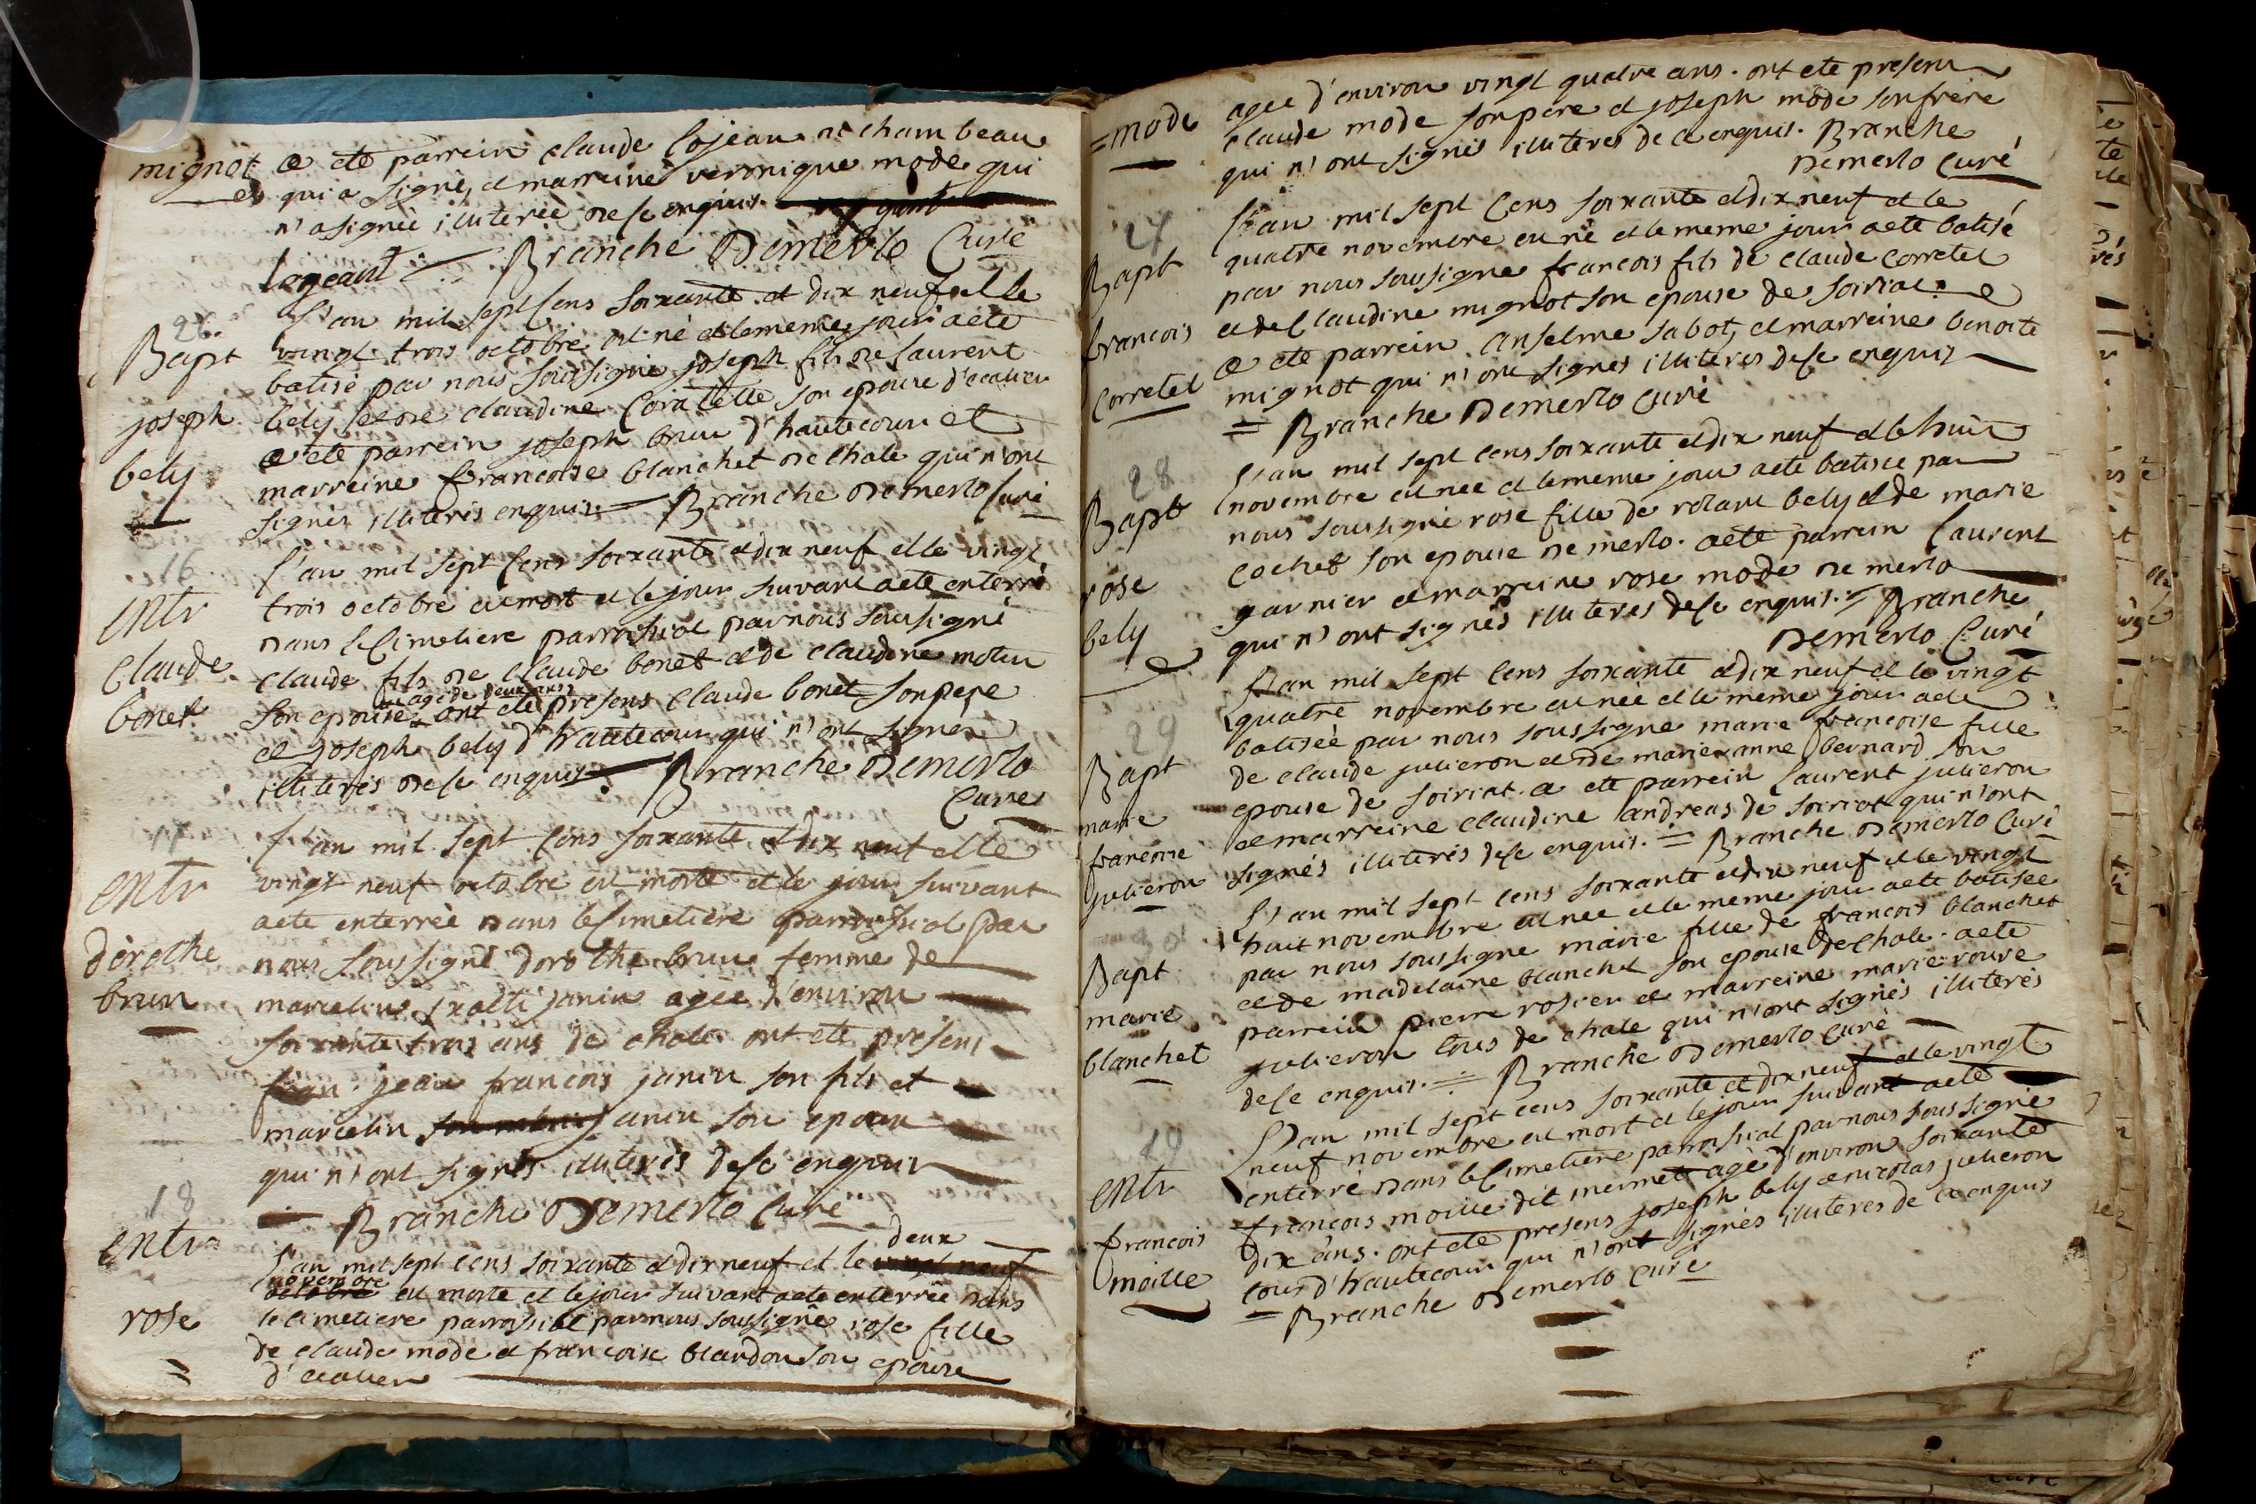 mignot a ete parrein claude lojean de chambeau
qui a signé, et marreine veronique mode qui
n'a signée illiterée de ce enquis
lageant Branche Demerlo Curé
26
Bapt
joseph
bely
L'an mil sept cens soixante et dix neuf et le
vingt trois octobre est né et le meme jour a ete
batisé par nous soussigné joseph fils de laurent
bely et de claudine son epouse
a ete parrein joseph brun d'hautecour et
marreine francoise blanchet de chale qui n'ont
signés illiterés enquis. Branche Demerlo Curé
16
entr
claude
bonet
L'an mil sept cens soixante et dix neuf et le vingt
trois octobre est mort et le jour suivant a ete enterré
dans le cimetiere parroissial par nous soussigné
claude fils de claude bonet et de claudine
agé de deux ans
son epouse ont ete presens claude bonet son pere
et joseph bely d'hautecour qui n'ont signés
illiterés de ce enquis. Branche Demerlo
Curé
17
entr
dorothe
brun
L'an mil sept cens soixante et dix neuf et le
vingt neuf octobre est morte et le jour suivant
a ete enterrée dans le cimetiere parroissial par
nous soussigné dorothe brun femme de
marcelin janin agee d'environ
soixante trois ans de chale ont ete presens
jean francois janin son fils et
marcelin janin son epoux
qui n'ont signés illiterés de ce enquis
Branche Demerlo Curé
18
entr
rose
=
deux
L'an mil sept cens soixante et dix neuf et le vingt neuf
novembre
octobre est morte et le jour suivant a ete enterrée dans
le cimetiere parroissial par nous soussigné rose fille
de claude mode et francoise blandon son epouse
=mode
agee d'environ vingt quatre ans. ont ete presens
claude mode son pere et joseph mode son frere
qui n'ont signés illiteres de ce enquis. Branche
Demerlo Curé
27
Bapt
francois
corretel
L'an mil sept cens soixante et dix neuf et le
quatre novembre est né et le meme jour a ete batisé
par nous soussigné francois fils de claude corretel
et de claudine mignot son epouse de soiriat.
a ete parrein anselme sabot, et marreine benoite
mignot qui n'ont signés illiteres de ce enquis
= Branche Demerlo Curé
28
Bapt
rose
bely
L'an mil sept cens soixante et dix neuf et le huit
novembre est née et le meme jour a ete batisee par
nous soussigné rose fille de rolant bely et de marie
cochet son epouse de merlo. a ete parrein laurent
garnier et marreine rose mode de merlo
qui n'ont signés illiteres de ce enquis. Branche
Demerlo Curé
29
Bapt
marie
francoise
julieron
L'an mil sept cens soixante et dix neuf et le vingt
quatre novembre est née et le meme jour a ete
batisée par nous soussigné marie francoise fille
de claude julieron et de marie anne bernard son
epouse de soiriat. a ete parrein laurent julieron
et marreine claudine andreas de soiriat qui n'ont
signés illiterés de ce enquis. = Branche Demerlo Curé
30
Bapt
marie
blanchet
L'an mil sept cens soixante et dix neuf et le vingt
huit novembre est née et le meme jour a ete batisee
par nous soussigné marie fille de francois blanchet
et de madelaine blanchet son epouse de chale. a ete
parrein pierre rosier et marreine marie rouxe
julieron tous de chale qui n'ont signés illiterés
de ce enquis. = Branche Demerlo Curé
19
entr
francois
moille
L'an mil sept cens soixante et dix neuf et le vingt
neuf novembre est mort et le jour suivant a ete
enterré dans le cimetiere parroissial par nous soussigné
francois moille dit mermet agé d'environ soixante
dix ans. ont ete presens joseph bely et nicolas julieron
tous d'hautecour qui n'ont signés illiteres de ce enquis
= Branche Demerlo Curé